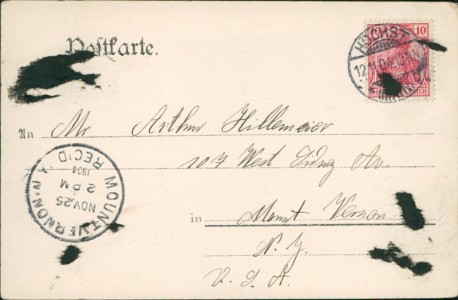 Postkarte.
10
HÖCHST
12.11.04
An Mr Arthur Hillemeier
107 West Sidney Av.
in Mount Vernon
N. Y.
U. S. A.
MOUNT VERNON N.Y.
NOV. 25
2 PM
1904
REC'D